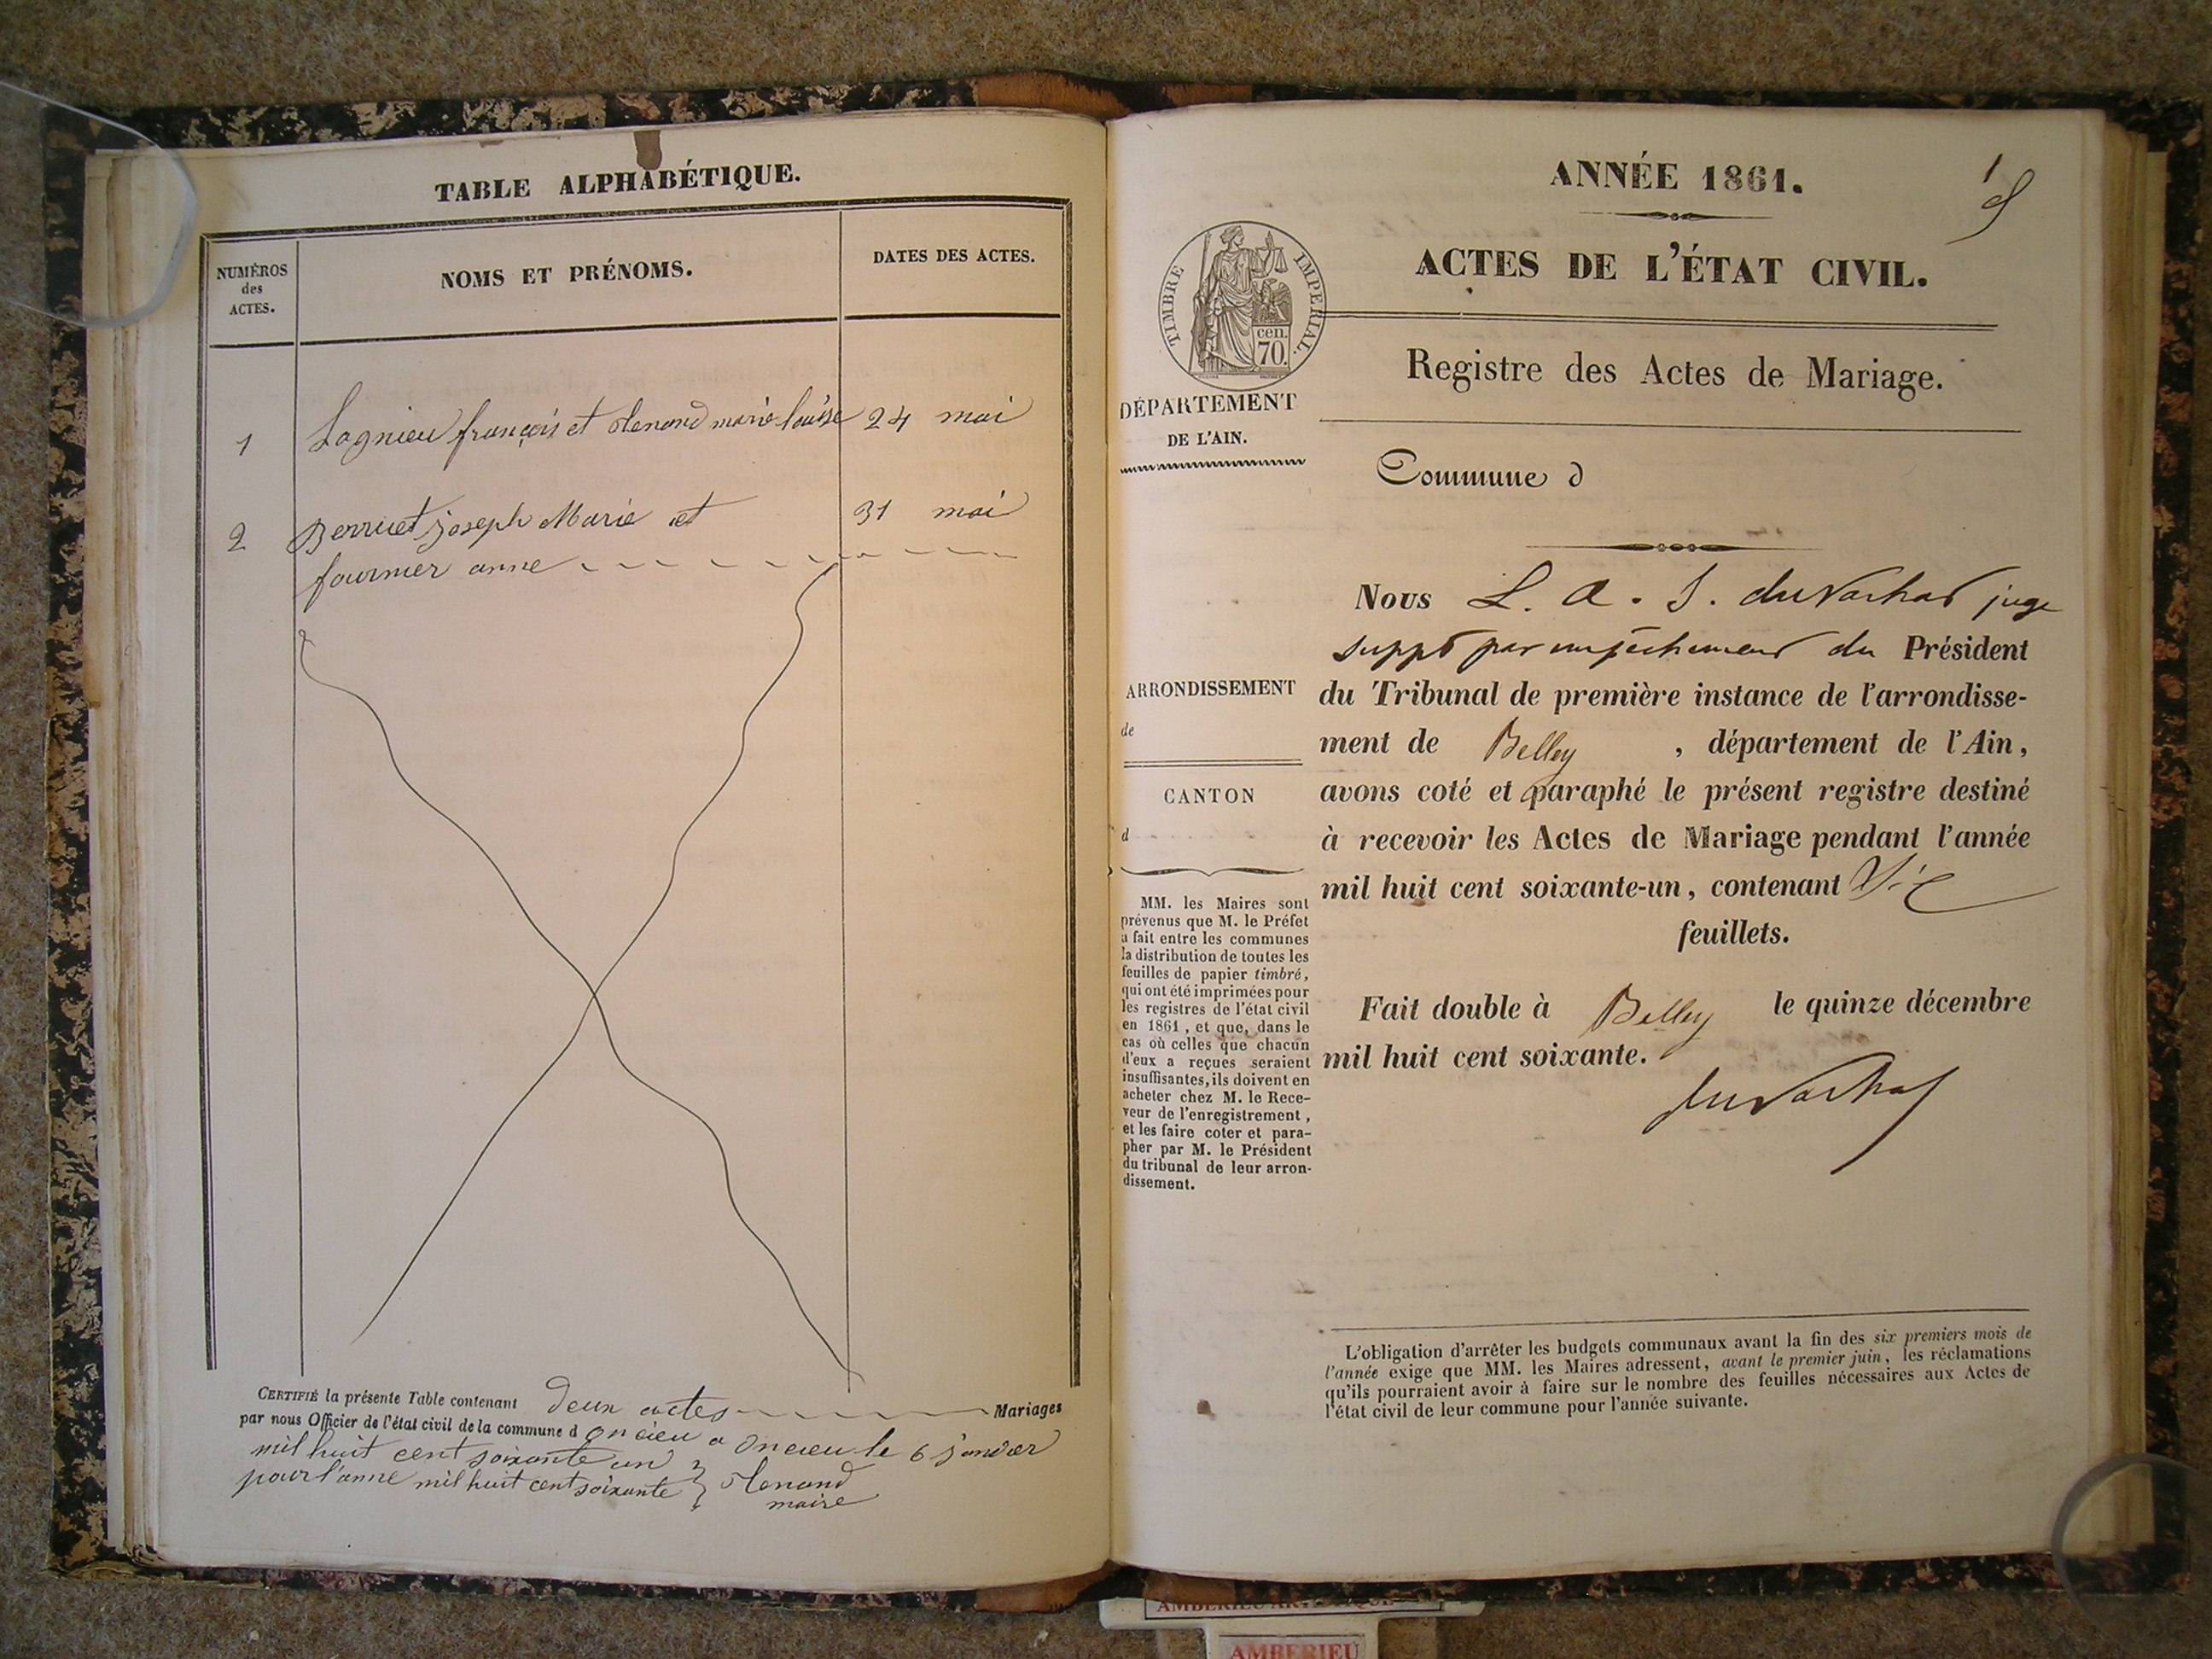 TABLE ALPHABÉTIQUE.
NUMÉROS
des
ACTES.
NOMS ET PRÉNOMS.
DATES DES ACTES.
1 Lagnieu françois et marie louise 24 mai
2 Berruet joseph Marie et 31 mai
fournier anne
CERTIFIÉ la présente Table contenant deux actes Mariages
par nous Officier de l'état civil de la commune d oncieu a oncieu le 6 janvier
mil huit cent soixante un
pour l'anne mil huit cent soixante
maire
ANNÉE 1861.
1
ACTES DE L'ÉTAT CIVIL.
TIMBRE IMPERIAL.
cen.
70.
DÉPARTEMENT
DE L'AIN.
Registre des Actes de Mariage.
Commune d
ARRONDISSEMENT
de
CANTON
d
MM. les Maires sont
prévenus que M. le Préfet
a fait entre les communes
la distribution de toutes les
feuilles de papier timbré,
qui ont été imprimées pour
les registres de l'état civil
en 1861, et que, dans le
cas où celles que chacun
d'eux a reçues seraient
insuffisantes, ils doivent en
acheter chez M. le Rece-
veur de l'enregistrement,
et les faire coter et para-
pher par M. le Président
du tribunal de leur arron-
dissement.
Nous L. a. juge
supp par empêchement du Président
du Tribunal de première instance de l'arrondisse-
ment de Belley, département de l'Ain,
avons coté et paraphé le présent registre destiné
à recevoir les Actes de Mariage pendant l'année
mil huit cent soixante-un, contenant
feuillets.
Fait double à Belley le quinze décembre
mil huit cent soixante.
L'obligation d'arrêter les budgets communaux avant la fin des six premiers mois de
l'année exige que MM. les Maires adressent, avant le premier juin, les réclamations
qu'ils pourraient avoir à faire sur le nombre des feuilles nécessaires aux Actes de
l'état civil de leur commune pour l'année suivante.
AMBERIEU